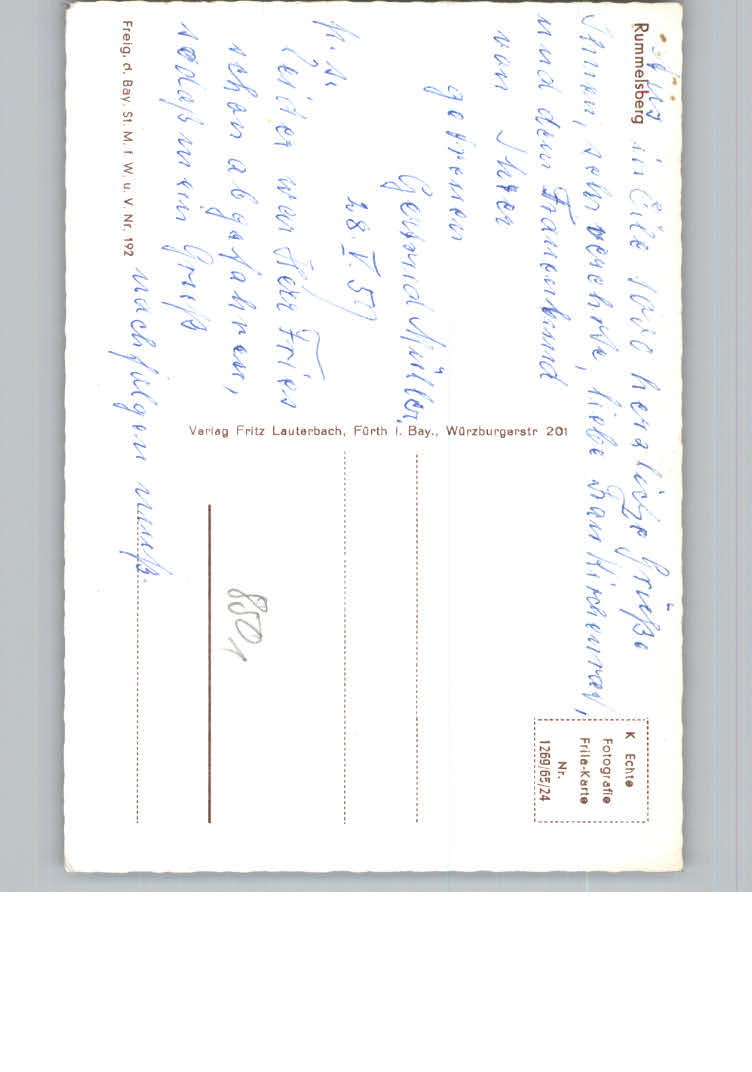 Rummelsberg
Nur in Eile 1000 herzliche Grüße
Ihnen, sehr verehrte, liebe Frau Kirchenrat,
und dem Frauenbund
von Ihrer
getreuen
Gertrud Müller.
28. V. 57
N. S.
Leider war Herr Fries
schon abgefahren,
sodaß mein Gruß
nachfolgen muß.
Freig. d. Bay. St. M. f. W. u. V. Nr. 192
Verlag Fritz Lauterbach, Fürth i. Bay., Würzburgerstr 201
K Echte
Fotografie
Frila-Karte
Nr.
1269/65/24
8501